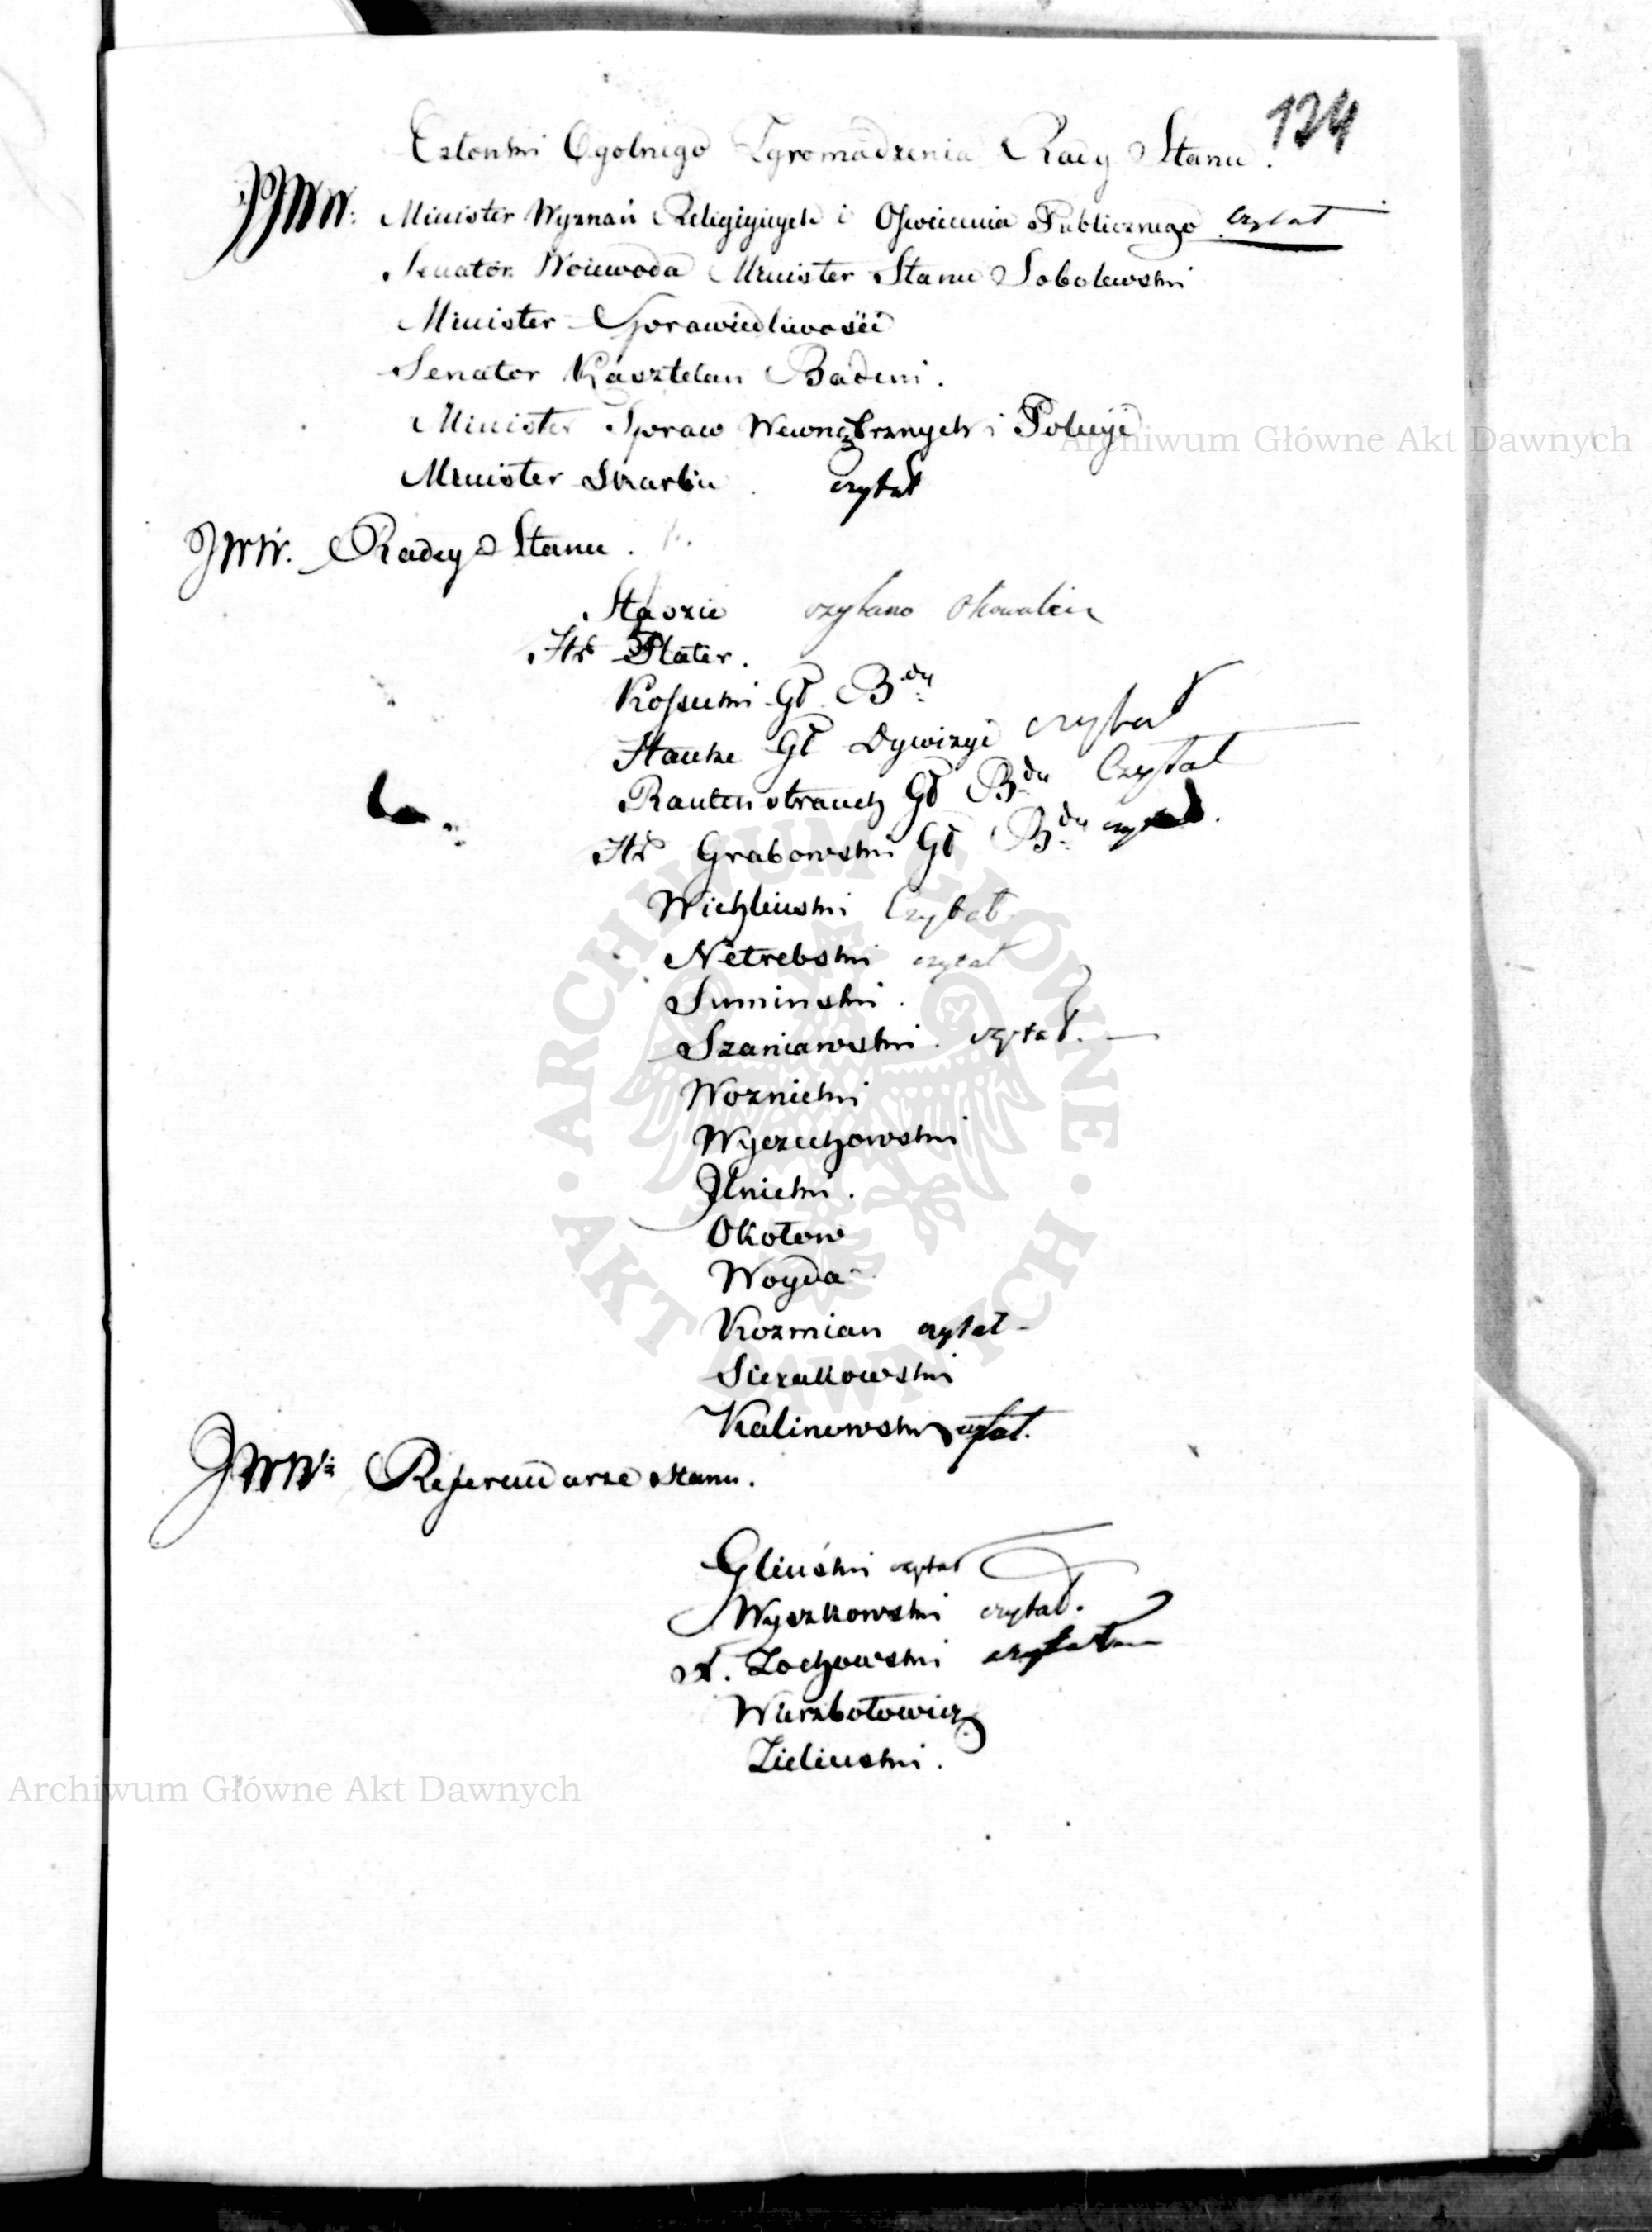 124
Członki Ogolnego Zgromadzenia Rady Stanu.
JJWW: Minister Wyznań Religiynych i Oświecenia Publicznego czytał
Senator Woiewoda Minister Stanu Sobolewski
Minister Sprawiedliwości
Senator Kasztelan Badeni.
Minister Spraw Wewnętrznych i Policyi
Archiwum Główne Akt Dawnych
Minister Skarbu. czytał
JWW. Radcy Stanu.
Staszic czytano
Hr Plater.
Kossecki Gł B.dy
Hauke Gł Dywizyi czytał
Rautenstrauch Gł B.dy Czytał
Hr Grabowski Gł B.dy czytał.
Wichlinski Czytał
Netrebski czytał
Suminski.
Szaniawski. czytał.
Woznicki
Wyczechowski
Jlnicki.
Okołow
Woyda
Kozmian czytał
Sierakowski
Kalinowski czytał.
JWW: Referendarze Stanu.
Gliński czytał
Wyszkowski czytał.
X. Zochowski czytałem
Wierzbołowicz
Zielinski.
Archiwum Główne Akt Dawnych
ARCHIWUM GŁÓWNE · AKT DAWNYCH ·